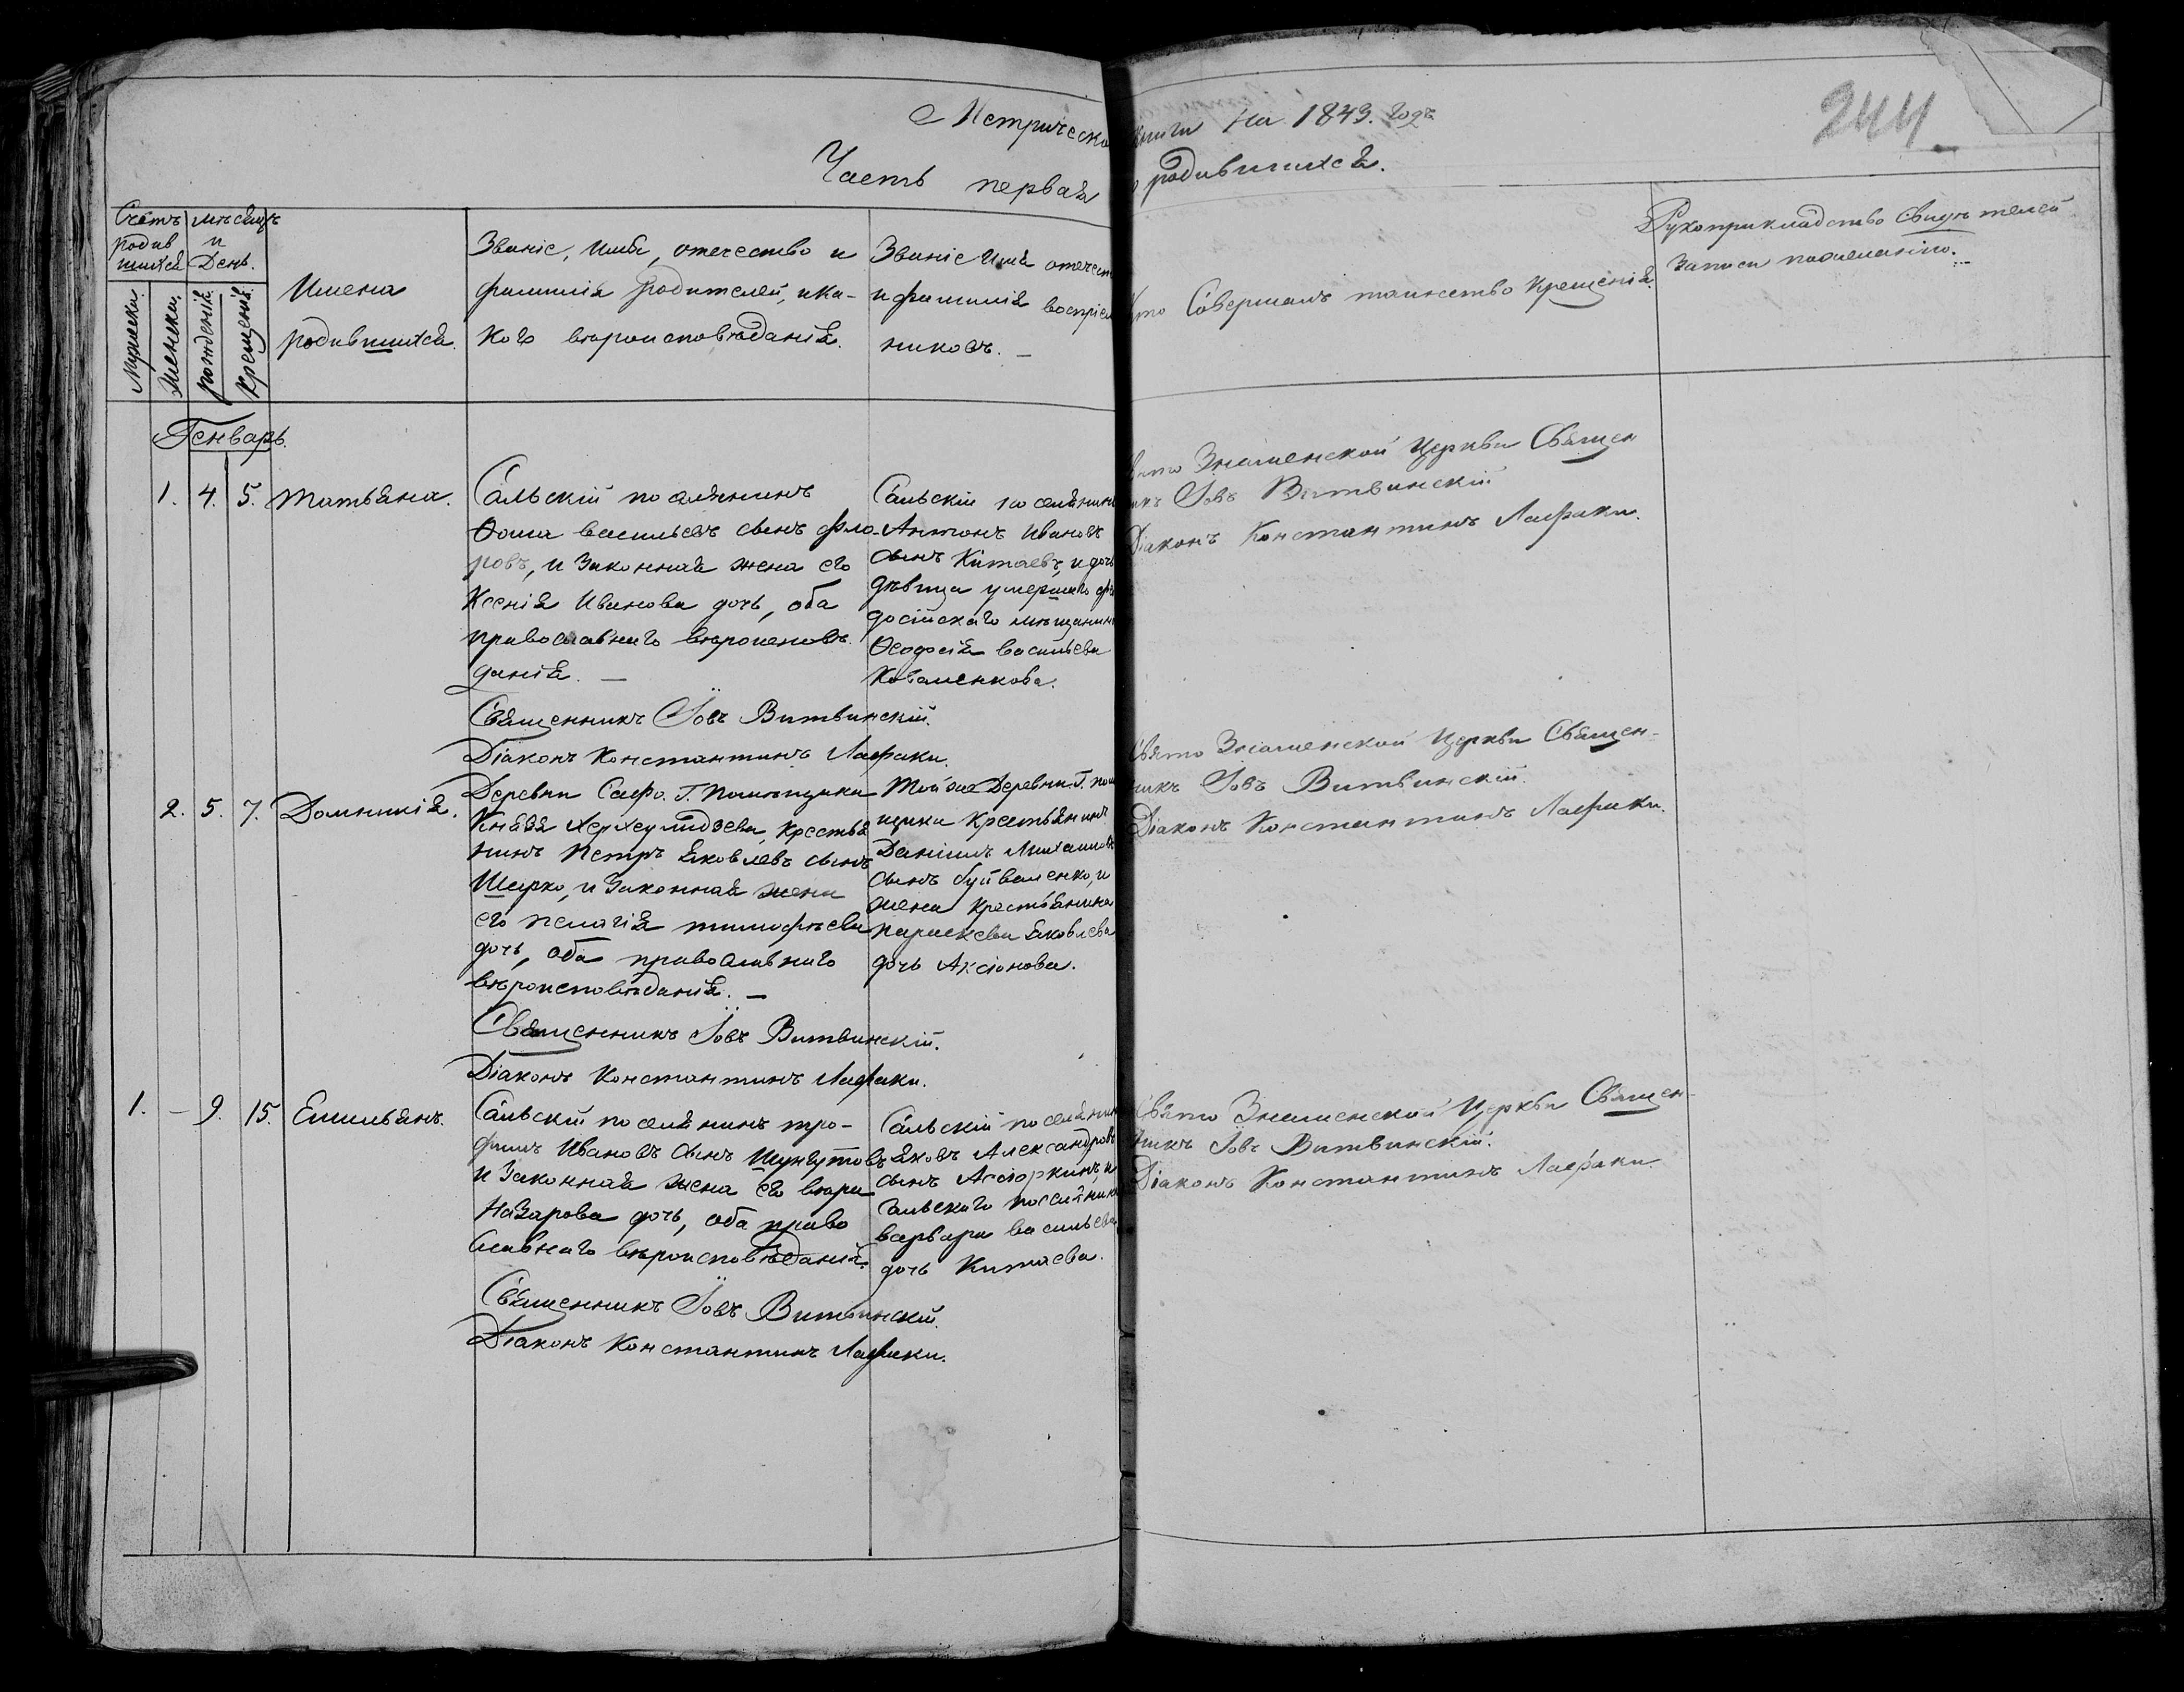 Метрической книги на 1843. годъ
244
Часть первая о родившихся.
Счетъ родив шихся
мѣсяцъ и День.
Мужеска.
Женска.
рожденія.
крещенія.
Имена
родившихся.
Званіе, имя, отечество и
фамилія родителей, ика-
кого вѣроисповѣданія.
Званіе имя отечест
и фамилія воспріем
никовъ. —
Кто Совершалъ таинство крещенія.
Рукоприкладство Свидѣтелей
Записи пожеланію.
Генварь.
1. 4. 5. Татьяна.
Сальскій поселянинъ
Ѳома васильевъ сынъ фло-
ровъ, и Законная жена его
Ксенія Иванова дочь, оба
православнаго вѣроисповѣ
данія. —
Священникъ Іовъ Витвинскій.
Діаконъ Константинъ Лафаки.
Сальскій поселянинъ
Антонъ Ивановъ
сынъ Китаевъ, и дочь
дѣвица умершаго фео
досійскаго мѣщанина
Ѳеодосія васильева
Коваленкова.
Свято Знаменской Церкви Священ
никъ Іовъ Витвинскій
Діаконъ Константинъ Лафаки.
2. 5. 7. Домникія.
Деревни Сафо. Г. Помѣщика
Князя Херхеулидзева, крестья
нинъ Петръ Яковлевъ сынъ
Шарко, и Законная жена
его пелагія тимофѣева
дочь, оба православнаго
вѣроисповѣданія. —
Священникъ Іовъ Витвинскій.
Діаконъ Константинъ Лафаки.
Той же Деревни Г. пом
щика крестьянинъ
Даніилъ Михаиловъ
сынъ буйваленко, и
жена крестьянина
параскева Яковлева
дочь Аксіонова.
Свято Знаменской Церкви Священ-
никъ Іовъ Витвинскій.
Діаконъ Константинъ Лафаки.
1. — 9. 15. Емильянъ.
Сальскій поселянинъ тро-
фимъ Ивановъ сынъ Шунгутовъ
и Законная жена его вѣра
Назарова дочь, оба право
славнаго вѣроисповѣданія.
Священникъ Іовъ Витвинскій.
Діаконъ Константинъ Лафаки.
Сальскій поселянин
Яковъ Александровъ
сынъ Асіоркинъ, и
сальскаго
варвара васильева
дочь Китаева.
Свято Знаменской Церкви Священ-
никъ Іовъ Витвинскій.
Діаконъ Константинъ Лафаки.